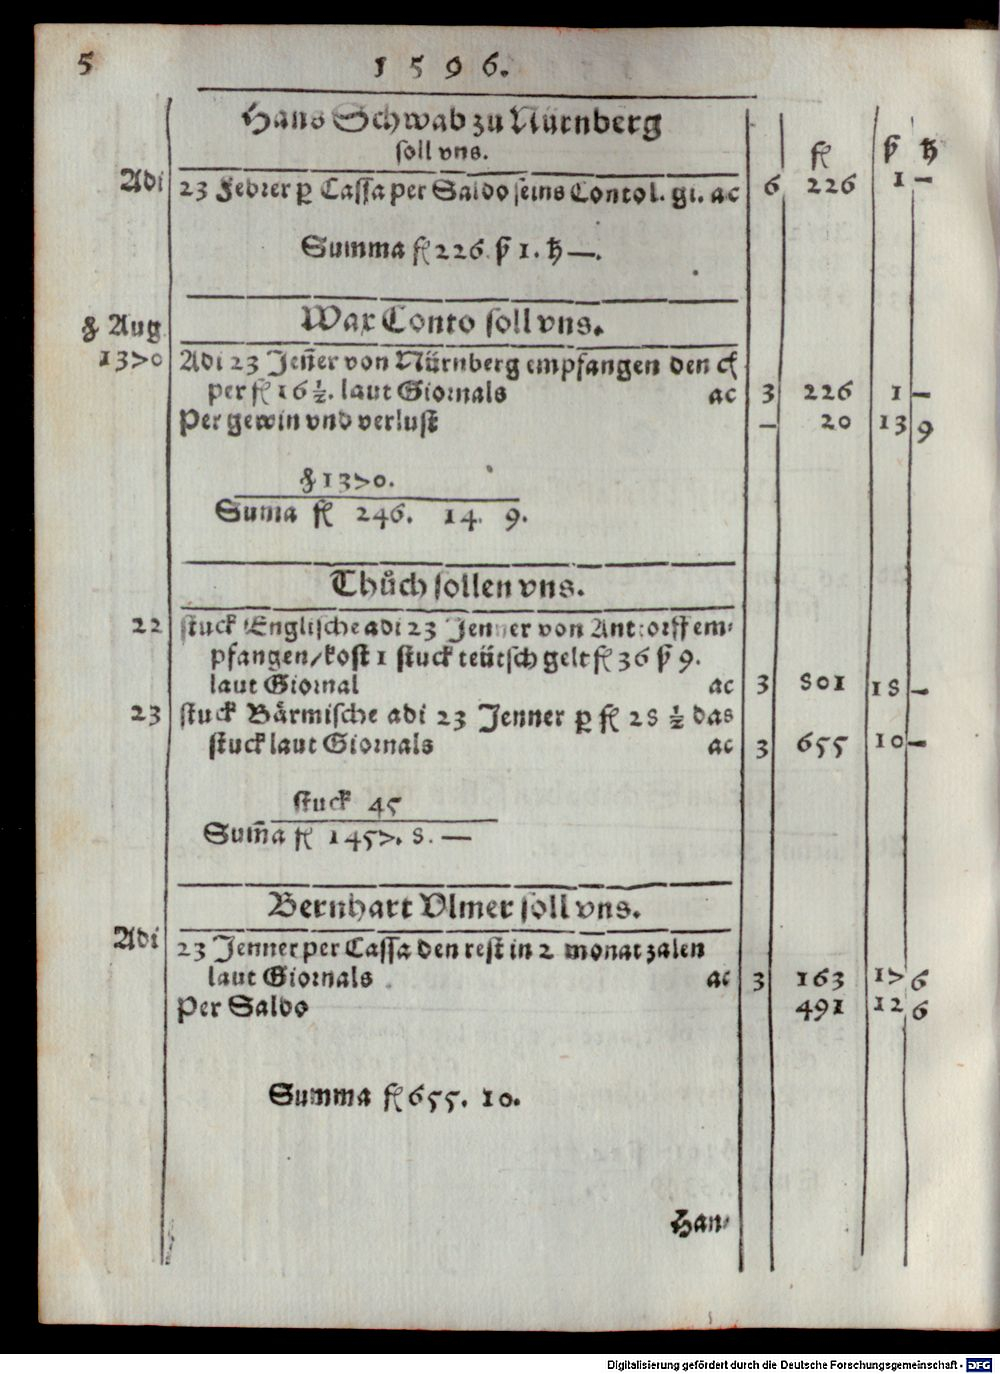 5 1596.
Hans Schwab zu Nürnberg
soll vns.
fl ß ₰
Adi 23 Febrer p Cassa per Saldo seins Conto l. gi. ac 6 226 1 —
Summa fl 226 ß 1. ₰ —.
Wax Conto soll vns.
℔ Aug
1370 Adi 23 Jeñer von Nürnberg empfangen den cſ
per fl 16 ½. laut Giornals ac 3 226 1 —
Per gewin vnd verlust — 20 13 9
℔ 1370.
Suma fl 246. 14. 9.
Thůch sollen vns.
22 stuck Englische adi 23 Jenner von Anttorff em-
pfangen/kost 1 stuck teütsch gelt fl 36 ß 9.
laut Giornal ac 3 801 18 —
23 stuck Bärmische adi 23 Jenner p fl 28 ½ das
stuck laut Giornals ac 3 655 10 —
stuck 45
Sum̃a fl 1457. 8. —
Bernhart Vlmer soll vns.
Adi 23 Jenner per Cassa den rest in 2 monat zalen
laut Giornals ac 3 163 17 6
Per Saldo 491 12 6
Summa fl 655. 10.
Han-
Digitalisierung gefördert durch die Deutsche Forschungsgemeinschaft - DFG